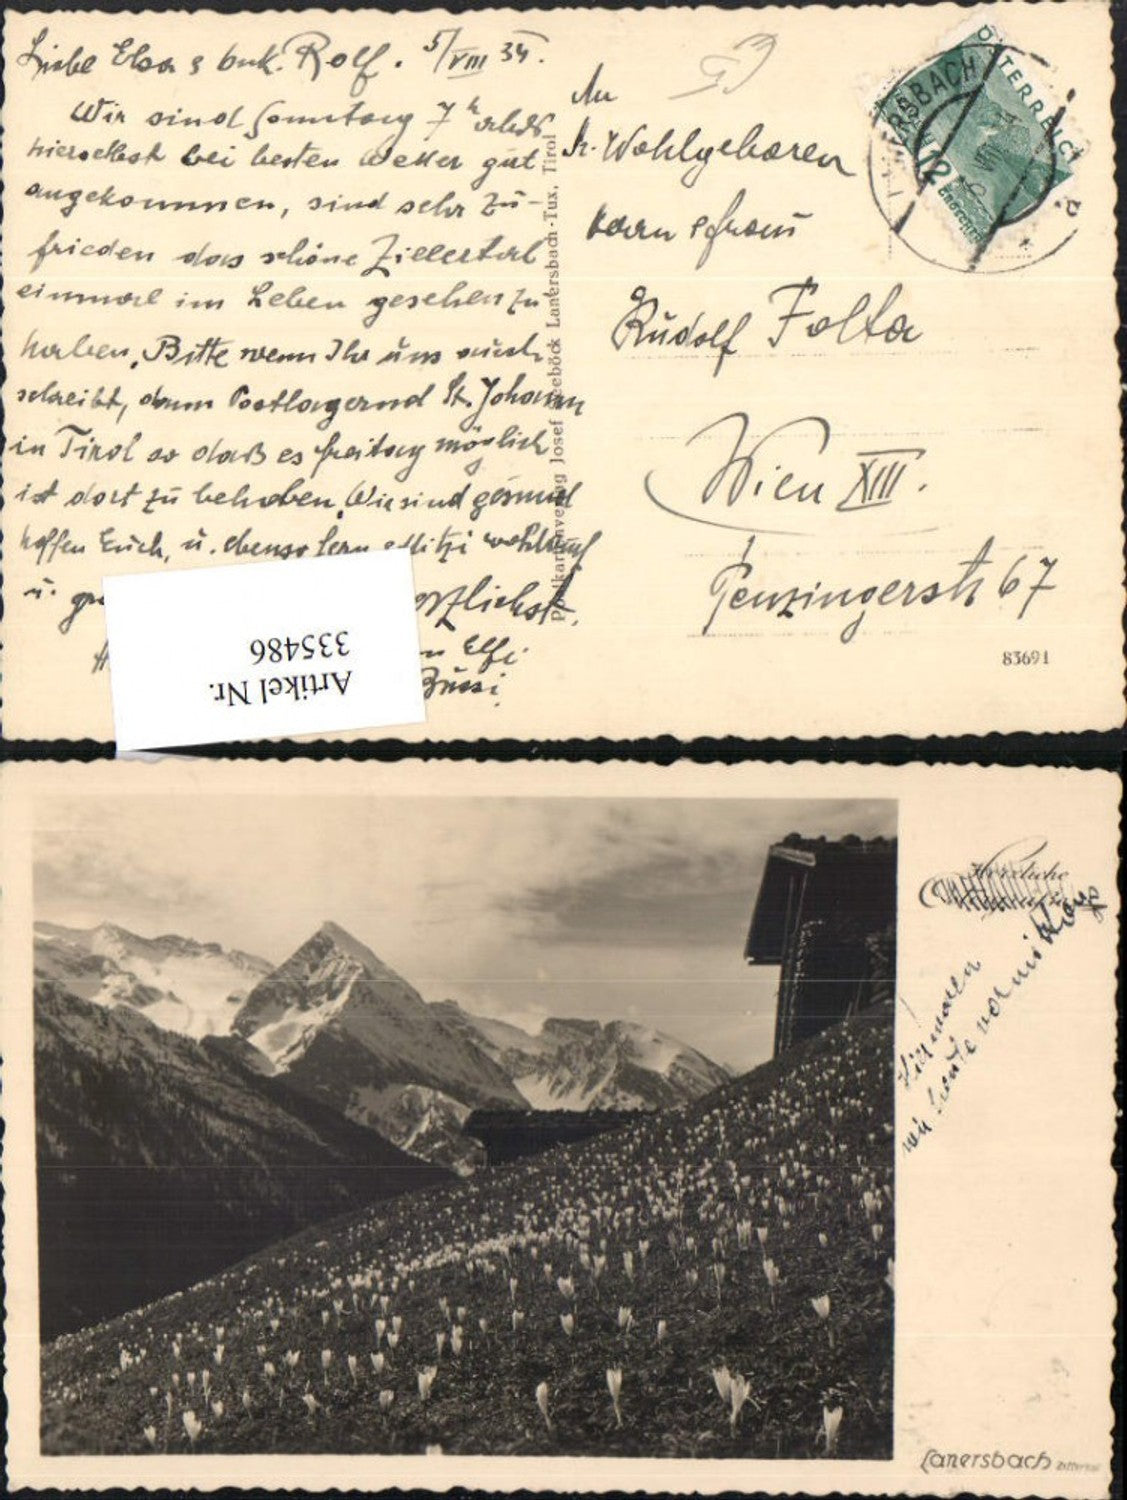 Liebe Elsa & buk. Rolf. 5/VIII 34.
Wir sind Sonntag 7h abds
hierselbst bei besten Wetter gut
angekommen, sind sehr zu-
frieden das schöne Zillertal
einmal im Leben gesehen zu
haben. Bitte wenn Ihr uns auch
schreibt, dann Postlagernd St. Johann
in Tirol so daß es freitag möglich
ist dort zu beheben. Wir sind gesund
hoffen Euch, u. ebenso wohlauf
u.
Elfi
Bussi.
Artikel Nr.
335486
Postkartenverlag Josef Seeböck Lanersbach-Tux, Tirol
An
Sr. Wohlgeboren
Herrn & frau
Rudolf Folta
Wien XIII.
Penzingerstr 67
83691
ÖSTERREICH
12 GROSCHEN
LANERSBACH
Herzliche
Hier waren
wir heute vormittag
Lanersbach Zillertal